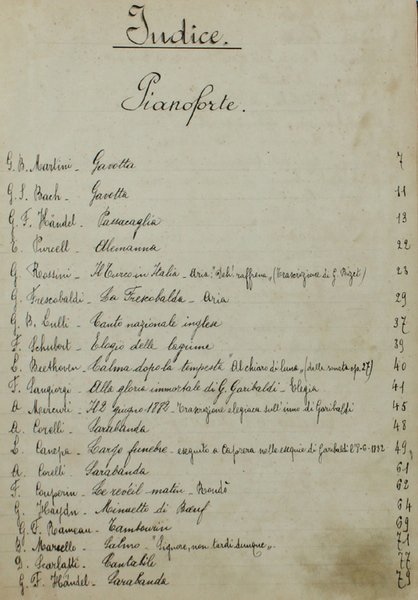 Indice.
Pianoforte.
G. B. Martini - Gavotta 7
G. S. Bach - Gavotta 11
G. F. Händel - Passacaglia 13
E. Purcell - Alemanna 22
G. Rossini - Il Turco in Italia - Aria: "Deh! raffrena" (Trascrizione di G. Bizet) 23
G. Frescobaldi - La Frescobalda - Aria 29
G. B. Lulli - Canto nazionale inglese 37
F. Schubert - Elogio delle lagrime 39
L. Beethoven - Calma dopo la tempesta "Al chiaro di luna" (dalla sonata op. 27) 40
F. Sangiorgi - Alla gloria immortale di G. Garibaldi - Elegia 41
A - Il 2 giugno 1882 Trascrizione elegiaca sull'inno di Garibaldi 45
A. Corelli - Sarabanda 48
L. Canepa - Largo funebre - eseguito a Caprera nelle esequie di Garibaldi 49
A. Corelli - Sarabanda 61
F. Couperin - Le reveil-matin - Rondò 62
G. Haydn - Minuetto di Bœuf 64
G. F. Rameau - Tambourin 69
B. Marcello - Salmo - "Signore, non tardi dunque" 71
D. Scarlatti - Cantabile 77
G. F. Händel - Sarabanda 79